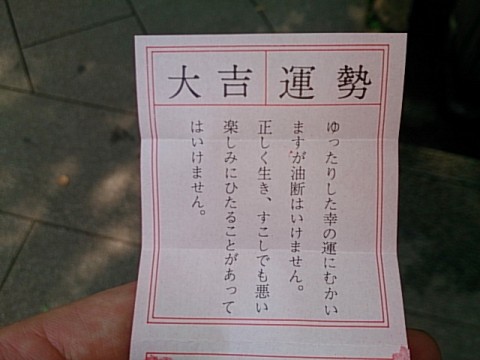 運勢 大吉
ゆったりした幸の運にむかい
ますが油断はいけません。
正しく生き、すこしでも悪い
楽しみにひたることがあって
はいけません。